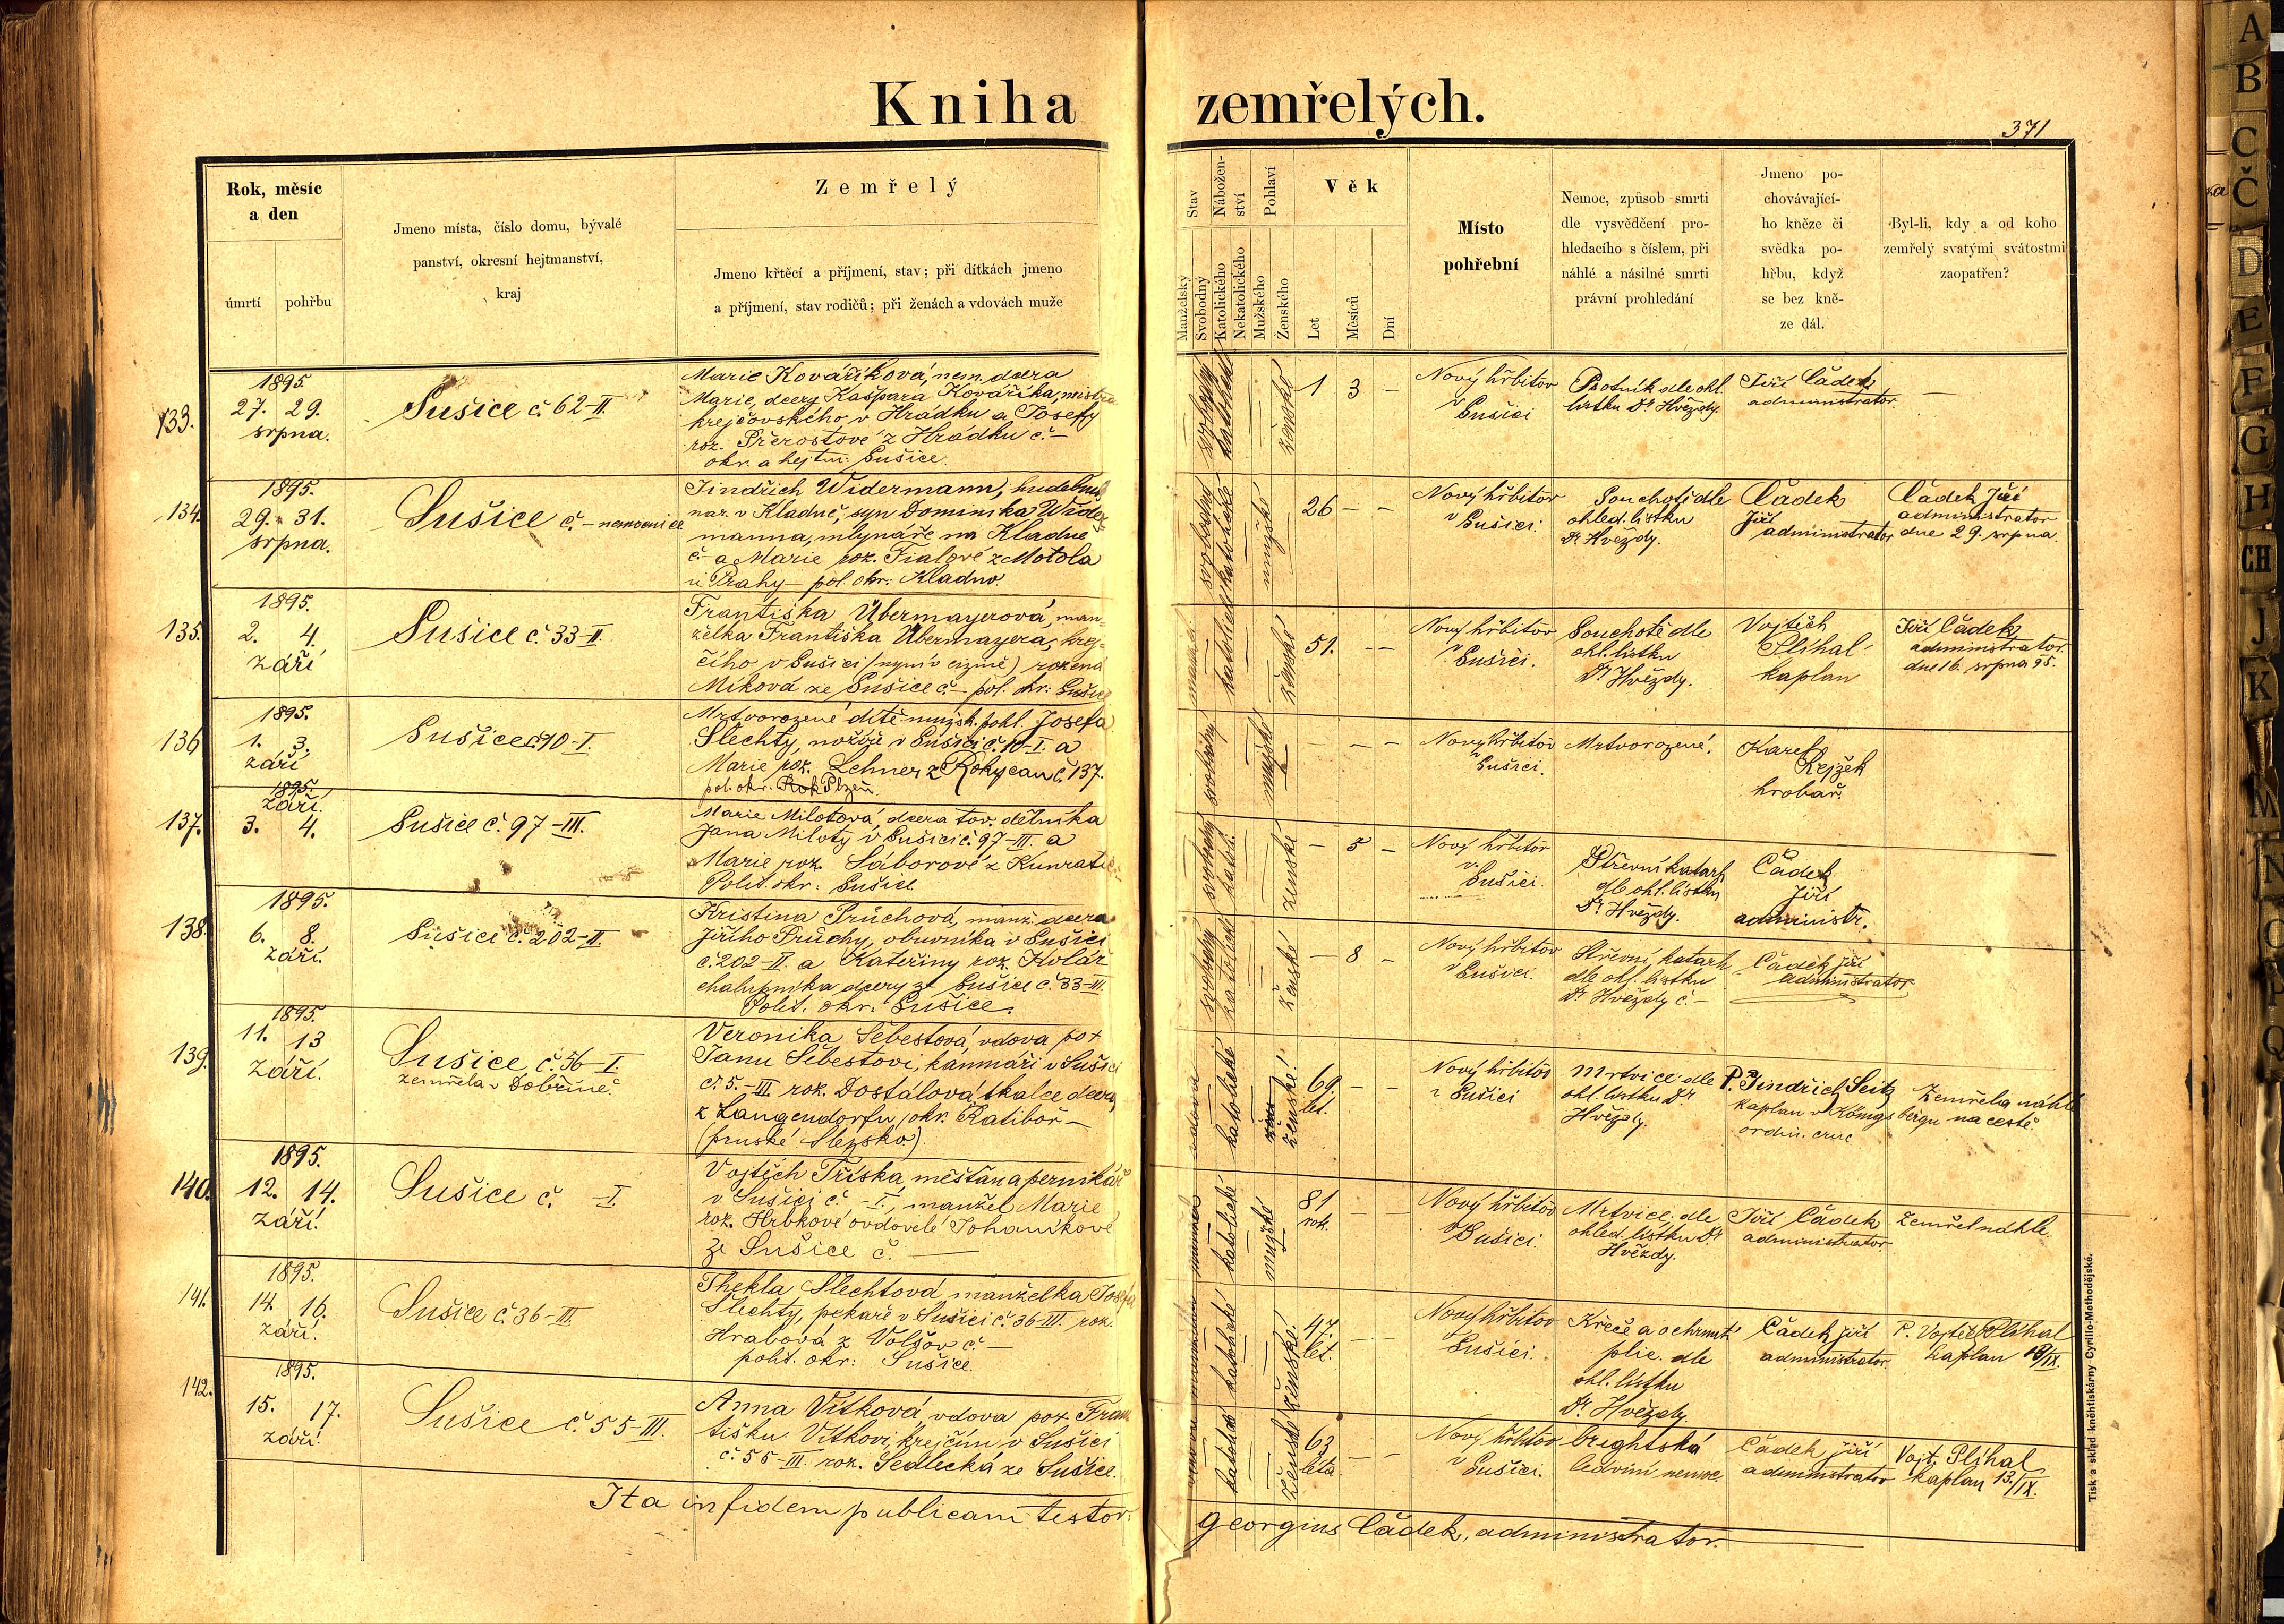 Kniha zemřelých.
371
Rok, měsíc
a den
úmrtí
pohřbu
Jmeno místa, číslo domu, bývalé
panství, okresní hejtmanství,
kraj
Zemřelý
Jmeno křtěcí a příjmení, stav; při dítkách jmeno
a příjmení, stav rodičů; při ženách a vdovách muže
Stav
Manželský
Svobodný
Nábožen-
ství
Katolického
Nekatolického
Pohlaví
Mužského
Ženského
Věk
Let
Měsíců
Dní
Místo
pohřební
Nemoc, způsob smrti
dle vysvědčení pro-
hledacího s číslem, při
náhlé a násilné smrti
právní prohledání
Jmeno po-
chovávající-
ho kněze či
svědka po-
hřbu, když
se bez kně-
ze dál.
Byl-li, kdy a od koho
zemřelý svatými svátostmi
zaopatřen?
133.
1895
27. 29.
srpna.
Sušice č. 62-II.
Marie Kováříková, nem. dcera
Marie, dcery Kašpara Kováříka, mistra
krejčovského v Hrádku a Josefy
roz. Přerostové z Hrádku č. –
okr. a hejtm: Sušice.
svobodný
katolické
ženské
1 3 –
Nový hřbitov
v Sušici
Psotník dle ohl.
lístku Dr Hvězdy.
Jiří Čádek
administrator.
–
134.
1895.
29. 31.
srpna.
Sušice č. – nemocnice
Jindřich Widermann, hudebník
nar. v Kladně, syn Dominika Wider-
manna, mlynáře na Kladně
č – a Marie roz. Fialové z Motola
u Prahy – pol. okr: Kladno
svobodný
katolické
mužské
26 – –
Nový hřbitov
v Sušici.
Souchotě dle
ohled. lístku
Dr Hvězdy.
Čádek
Jiří
administrator
Čádek Jiří
administrator
dne 29. srpna.
135.
1895.
2. 4.
září
Sušice č. 33-II.
Františka Übermayerová, man-
želka Františka Übermayera, krej-
čího v Sušici (nyní v cizině) rozená
Míková ze Sušice č – pol. okr: Sušice
katolické
ženské
51. – –
Nový hřbitov
v Sušici.
Souchotě dle
ohl. lístku
Dr Hvězdy.
Vojtěch
Plíhal
kaplan
Jiří Čádek
administrator.
dne 16. srpna 95.
136
1895.
1. 3.
září
Sušice č. 10-I.
Mrtvorozené dítě mužsk. pohl. Josefa
Šlechty, nožíře v Sušici č. 10-I. a
Marie roz. Lehner z Rokycan č. 137.
pol. okr. Plzeň.
svobodný
mužské
– – –
Nový hřbitov
v Sušici.
Mrtvorozené.
Karel
Rejžek
hrobař.
137.
1895.
září.
3. 4.
Sušice č. 97-III.
Marie Milotová dcera tov. dělníka
Jana Miloty v Sušici č. 97-III. a
Marie roz. Sáborové z Kunratic
Polit. okr: Sušice
svobodný
katol.
ženské
– 5 –
Nový hřbitov
v Sušici.
Střevní katarh
dle ohl. lístku
Dr Hvězdy.
Čádek
Jiří
administr.
138.
1895.
6. 8.
září.
Sušice č. 202-II.
Kristina Průchová, manž. dcera
Jiřího Průchy, obuvníka v Sušici
č. 202-II. a Kateřiny roz. Kolář
chalupníka dcery ze Sušice č. 33-III.
Polit. okr. Sušice.
svobodný
katolické
ženské
– 8 –
Nový hřbitov
v Sušici.
Střevní katarh
dle ohl. lístku
Dr Hvězdy č –
Čádek Jiří
administrator
139.
1895.
11. 13
září.
Sušice č. 56-I.
zemřela v Dobříně.
Veronika Šebestová, vdova po †
Janu Šebestovi, kamnáři v Sušici
č. 5.-III roz. Dostálová, tkalce dcera
z Langendorfu, okr. Ratiboř –
(pruské Slezsko).
vdova
katolické
ženské!
69. – –
let.
Nový hřbitov
v Sušici
Mrtvicí dle
ohl. lístku Dr
Hvězdy.
P. Jindřich Seitz
kaplan v Königsbergu
ordin. cruc
Zemřela náhle
na cestě.
140.
1895.
12. 14.
září.
Sušice č. -I.
Vojtěch Tříska, měšťan a perníkář
v Sušici č. -I., manžel Marie
roz. Hrbkové ovdovělé Johaníkové
ze Sušice č. –
katolické
mužské
81 – –
rok.
Nový hřbitov
v Sušici.
Mrtvicí dle
ohled. lístku Dr
Hvězdy.
Jiří Čádek
administrator
Zemřel náhle.
141.
1895.
14. 16.
září.
Sušice č. 36-III
Thekla Šlechtová manželka Josefa
Šlechty, pekaře v Sušici č. 36-III. roz.
Hrabová z Volšov č. –
polit. okr: Sušice.
katolické
ženské!
47. – –
let.
Nový hřbitov
v Sušici.
Křeče a ochrnutí
plic. dle
ohl. lístku
Dr Hvězdy.
Čádek Jiří
administrator.
P. Vojtěch Plíhal
kaplan 13/IX.
142.
1895.
15. 17.
září.
Sušice č. 55-III.
Anna Vítková, vdova po † Fran-
tišku Vítkovi, krejčím v Sušici
č. 55-III. roz. Sedlecká ze Sušice.
katolické
ženské
63 – –
léta.
Nový hřbitov
v Sušici.
brightská
ledviní nemoc.
Čádek Jiří
administrator
Vojt. Plíhal
kaplan 13./IX.
Ita in fidem publicam testor.
Georgius Čádek, administrator.
Tisk a sklad knéhtiskárny Cyrillo-Methodějské.
A
B
C
Č
D
E
F
G
H
CH
J
K
M
N
O
P
Q